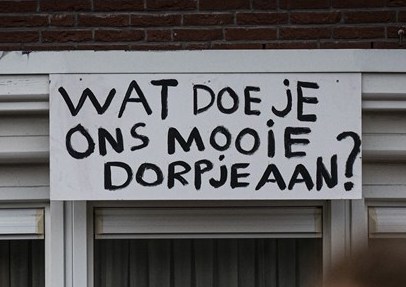 WAT DOE JE
ONS MOOIE
DORPJE AAN?